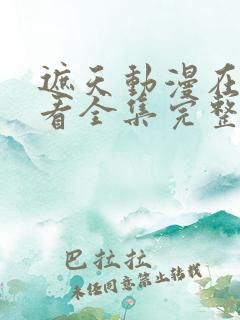 遮天動漫在
看全集完整
巴拉拉
未任同意禁止转载